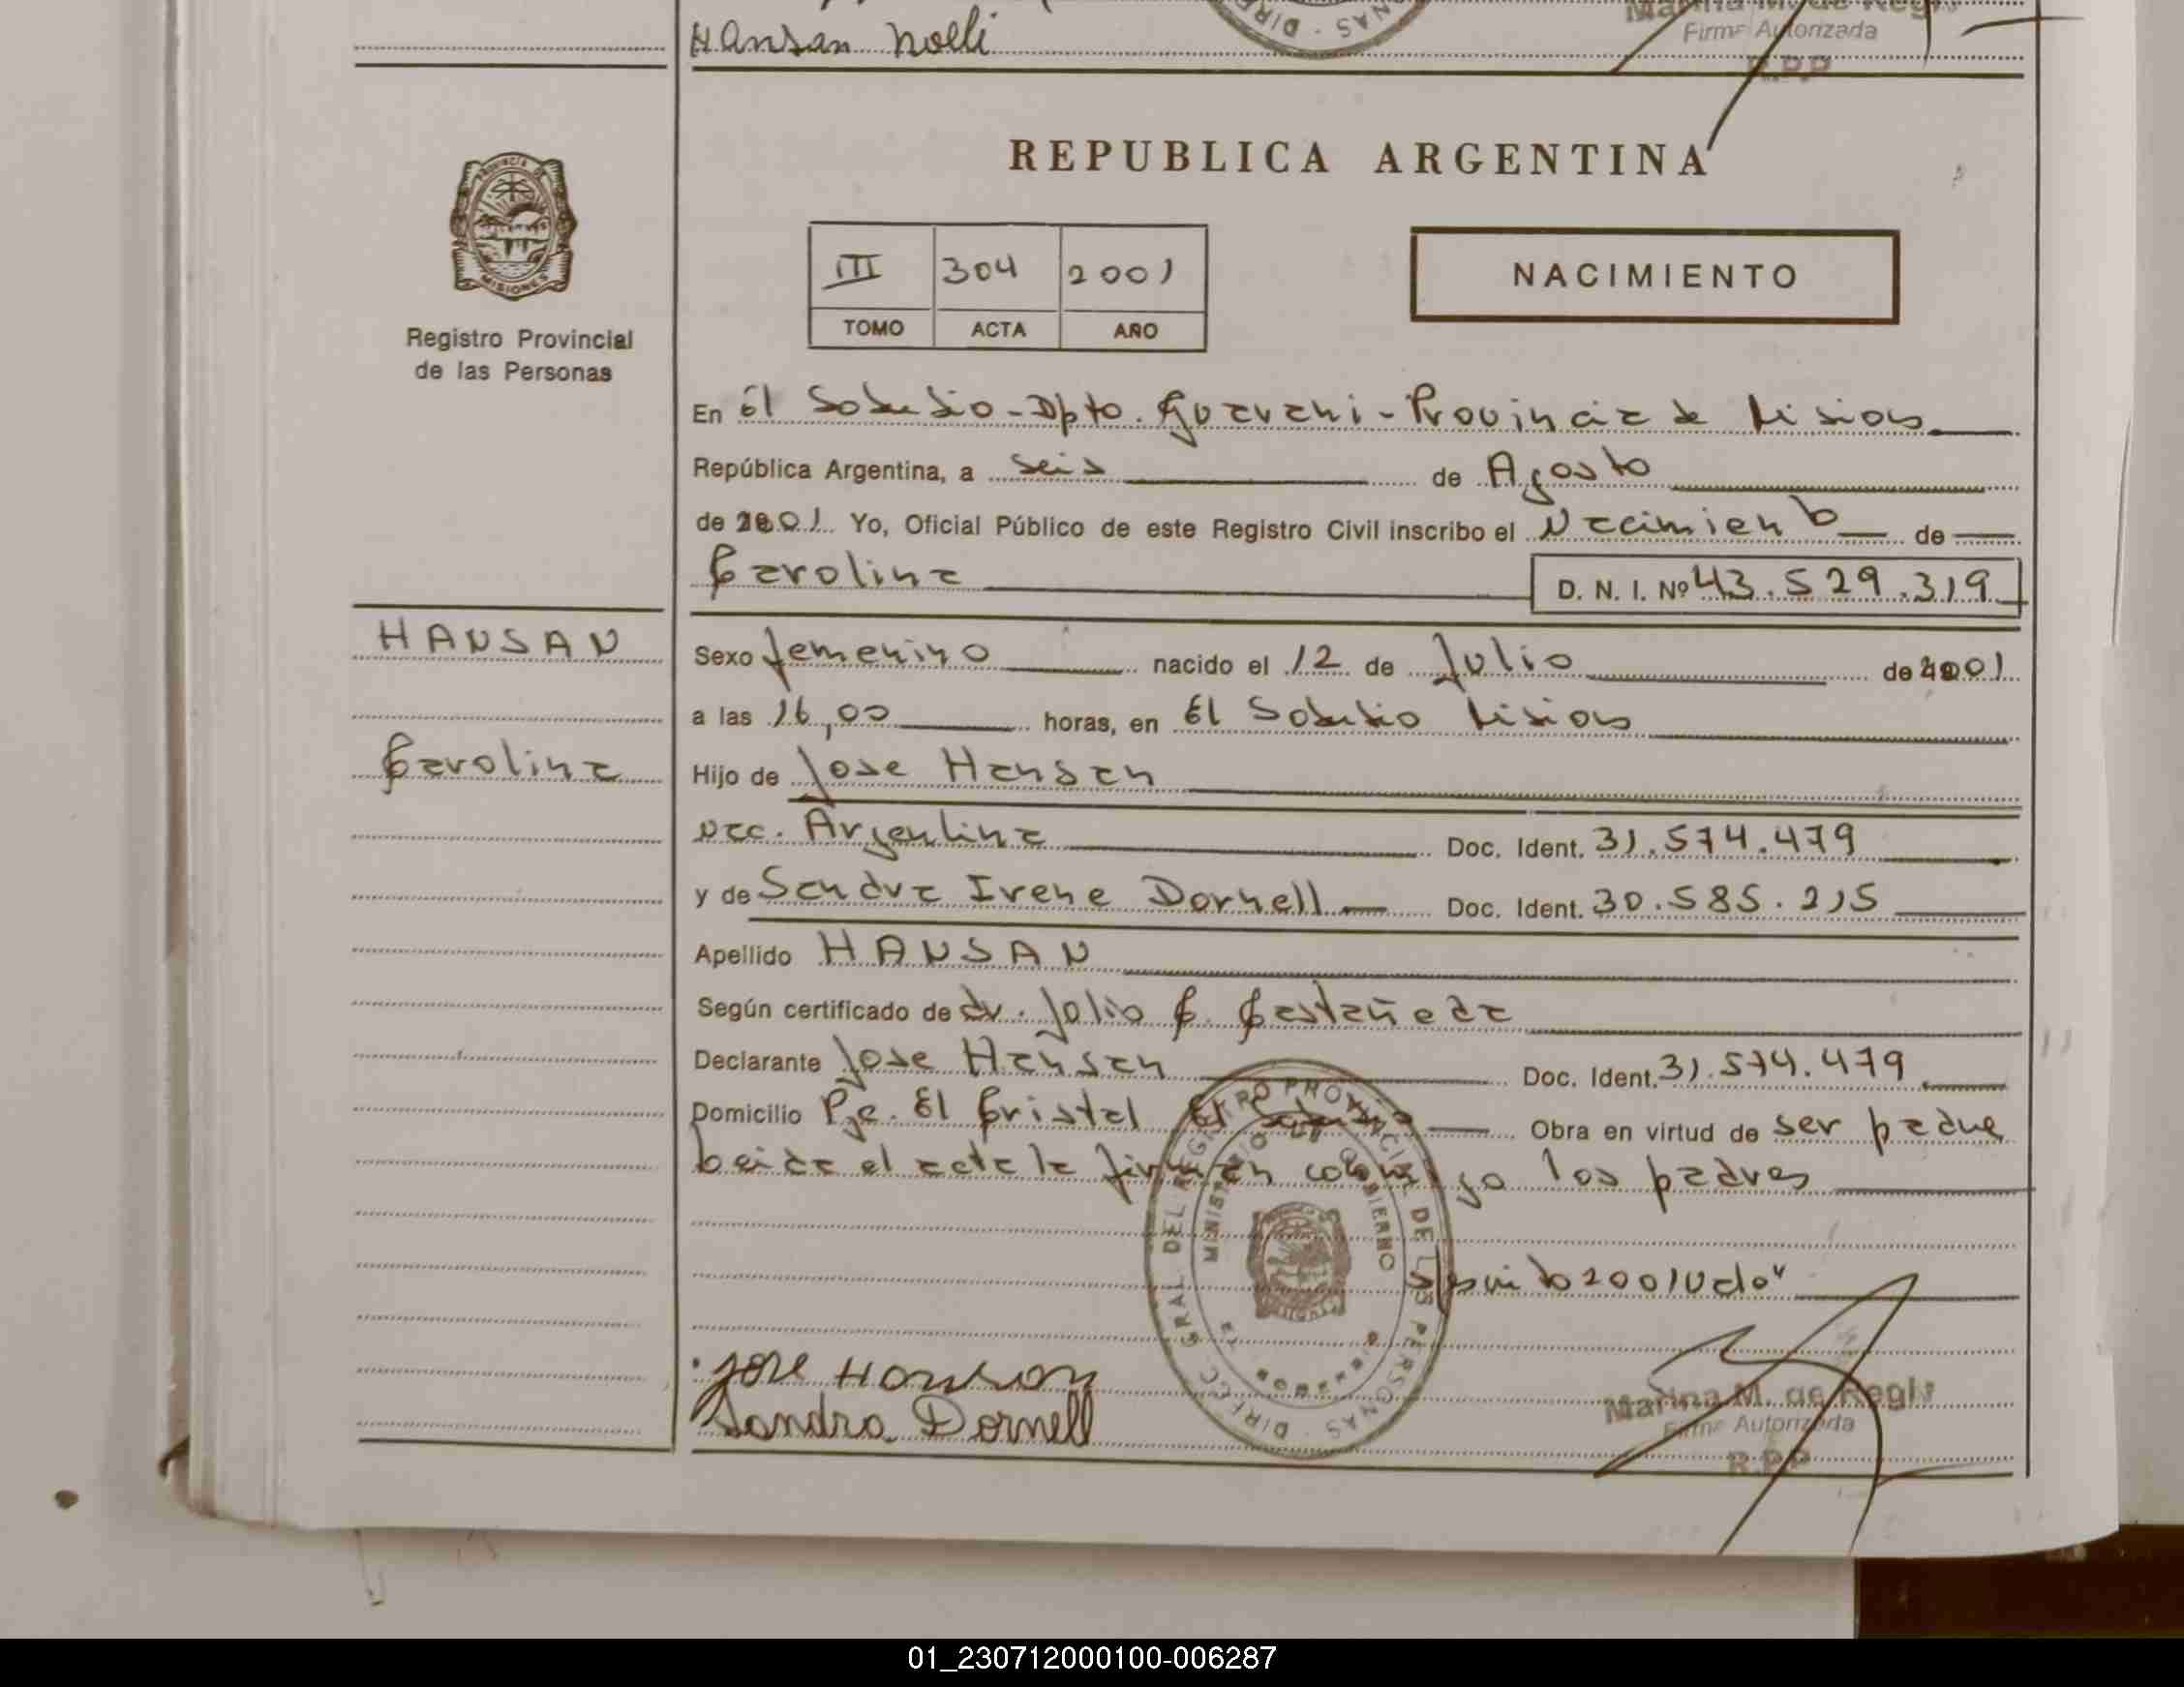 Hansan Nolli
DIRE · NAS
Marina M. de Regis
Firma Autorizada
R.P.P
REPUBLICA ARGENTINA
PROVINCIA DE
MISIONES
III 304 2001
TOMO ACTA AÑO
NACIMIENTO
Registro Provincial
de las Personas
En El Soberbio - Dpto. Guarani - Provincia de Misiones
República Argentina, a seis de Agosto
de 2001 Yo, Oficial Público de este Registro Civil inscribo el Nacimiento de
Carolina D. N. I. Nº 43.529.319
HANSAN
Carolina
Sexo femenino nacido el 12 de Julio de 2001
a las 16,00 horas, en El Soberbio Misiones
Hijo de Jose Hansan
nac. Argentina Doc. Ident. 31.574.479
y de Sandra Irene Dornell Doc. Ident. 30.585.215
Apellido HANSAN
Según certificado de dr. Julio C. Castañeda
Declarante Jose Hansan Doc. Ident. 31.574.479
Domicilio Pje. El Cristal El Soberbio Obra en virtud de ser padre
Leida el acta la firman conmigo los padres
DIREC. GRAL. DEL REGISTRO PROVINCIAL DE LAS PERSONAS
MINISTERIO DE GOBIERNO
2001
Jose Hanson
Sandra Dornell
Marina M. de Regis
Firma Autorizada
R.P.P
01_230712000100-006287